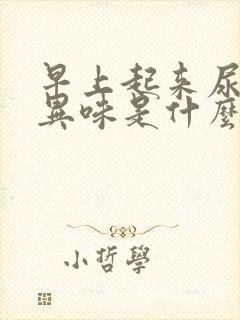 早上起来尿
異味是什麼
小哲學